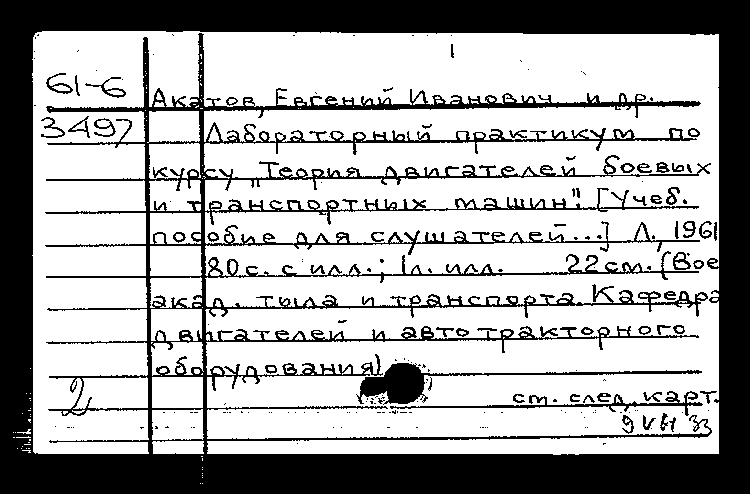 1
61-6
Акатов, Евгений Иванович и др.
3497
Лабораторный практикум по
курсу „Теория двигателей боевых
и транспортных машин". [Учеб.
пособие для слушателей...] Л., 1961
80 с. с илл.; 1 л. илл. 22 см. (Вое
акад. тыла и транспорта. Кафедра
двигателей и автотракторного
оборудования)
2
см. след. карт.